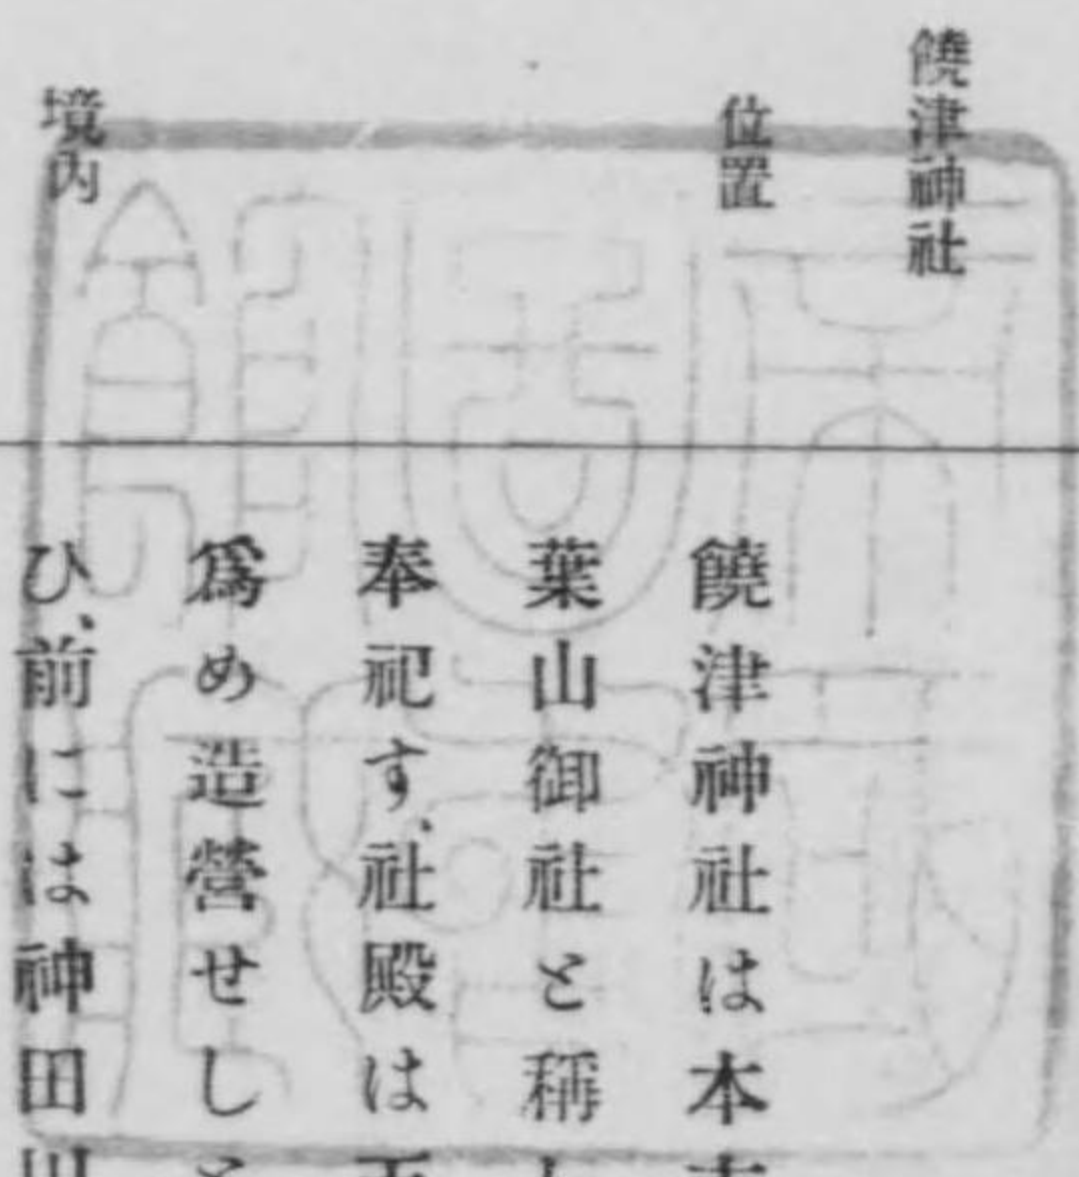 饒津神社
位置
境內
饒津神社は本
葉山御社と稱
奉祀す、社殿は
爲め造營せし
ひ、前には神田